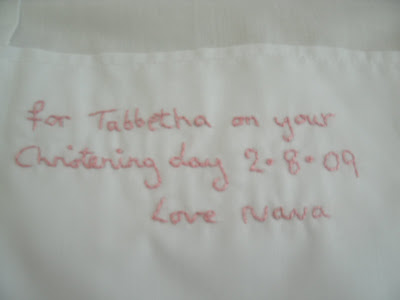 for Tabbetha on your
Christening day 2.8.09
Love Nana